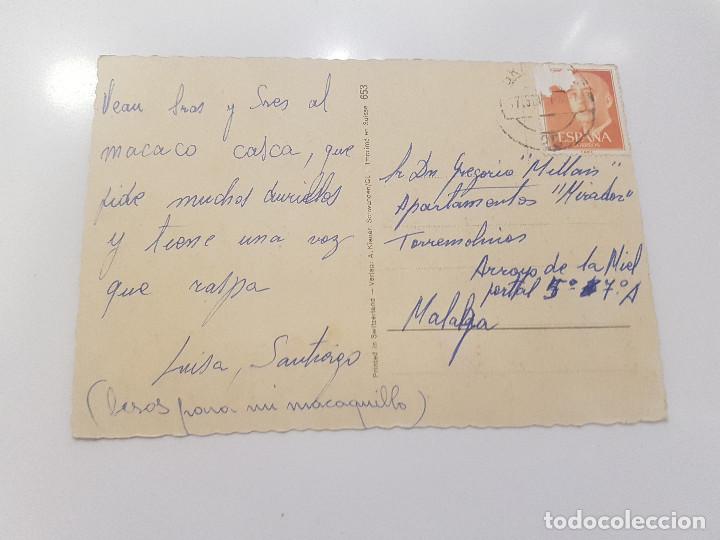 Vean Sras y Sres al
macaco casca, que
pide muchos durillos
y tiene una voz
que raspa
Luisa, Santiago
(besos para mi macaquillo)
Printed in Switzerland — Verlag: A. Klauser, Schwanden/GL Imprimé en Suisse 653
ESPAÑA
CORREOS
Sr Dn Gregorio "Millan"
Apartamentos "Mirador"
Torremolinos
Arroyo de la Miel
portal 5º 7º A
Malaga
todocoleccion.net